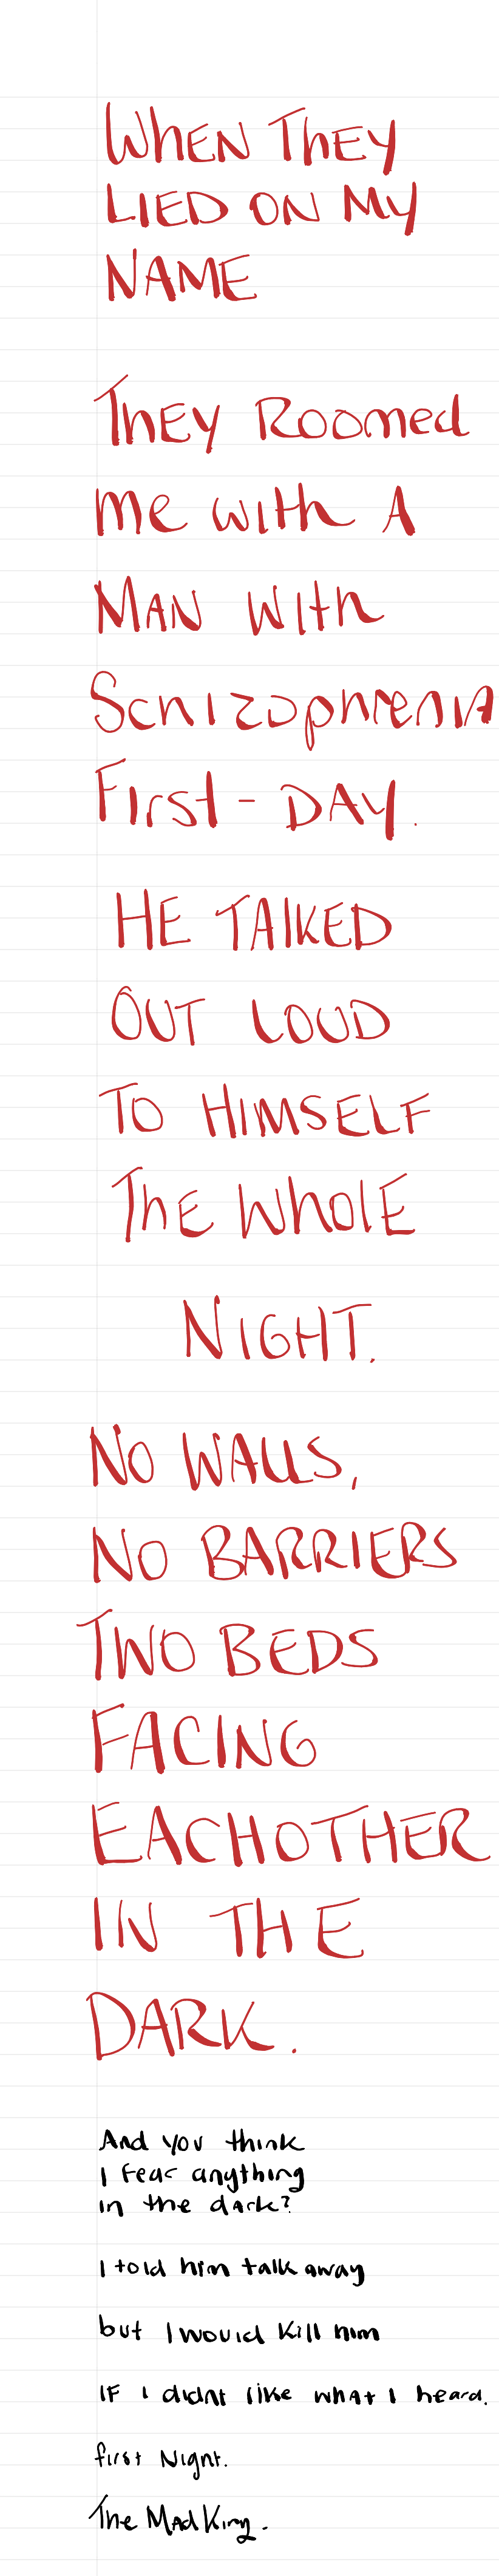 WhEN ThEY
LIED ON MY
NAME
ThEY Roomed
me with A
MAN WIth
SchIzophrenIA
First - DAY.
HE TAlKED
OUT LOUD
TO HIMSELF
ThE WholE
NIGHT.
NO WALLS,
NO BARRIERS
TWO BEDS
FACING
EACHOTHER
IN THE
DARK.
And you think
I fear anything
in the dark?
I told him talk away
but I would kill him
IF I didnt like what I heard.
first Night.
The Mad King.